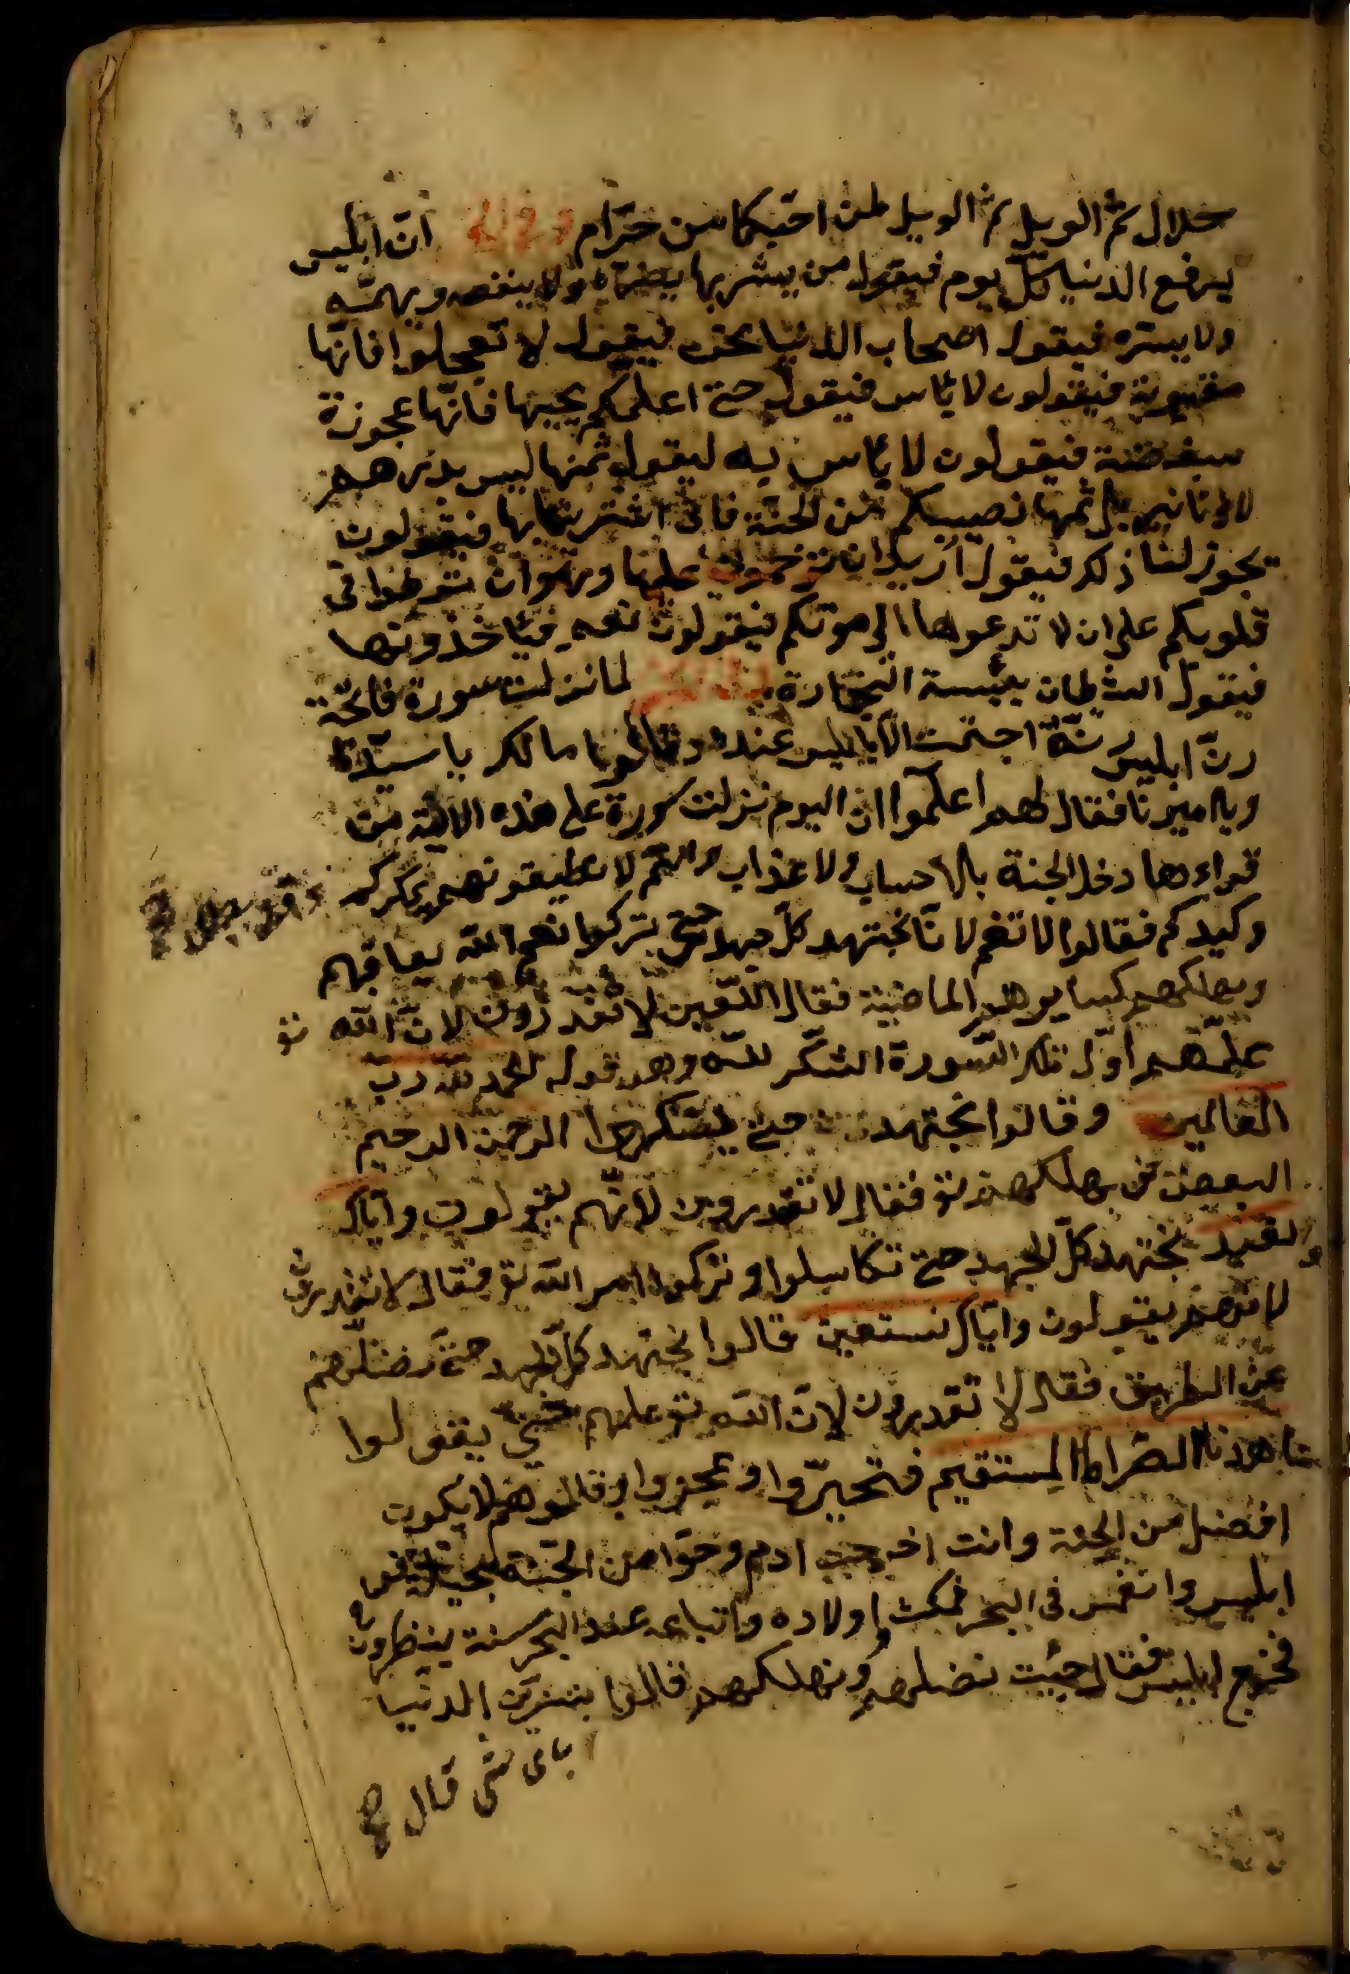 حلال ثم الويل ثم الويل لمن احبكما من حرام ان ابليس
يرفع الدنيا كل يوم فيقول من يشتريها يضره ولا ينفعه ويهمّه
ولا يسره فيقول اصحاب الدنيا نحن فيقول لا تعجلوا فانها
معيوبة فيقولون لا بأس فيقول حتى اعلمكم بحبها فانها عجوزة
مبغضة فيقولون لا بأس به ليقول ثمنها ليس بدرهم
لا دنانير بل ثمنها نصيبكم من الجنة فانى اشتريتها بها فيقولون
يجوز لنا ذلك فيقول اريد ان عليها وهو ان توطنوا فى
قلوبكم على ان لا تدعوها الى موتكم فيقولون نعم فيأخذونها
فيقول الشيطان بئست التجارة لما نزلت سورة فاتحة
رنّ ابليس رنّة اجتمعت الاباليس عنده وقالوا ما لك يا سيدنا
ويا اميرنا فقال لهم اعلموا ان اليوم نزلت سورة على هذه الامة من
قراءها دخل الجنة بلا حساب ولا عذاب وانتم لا تطيقونهم بمكركم
وكيدكم فقالوا لا تغم لانا نجتهد كل جهد حتى يتركوا نعم الله يعاقبهم
ويهلكهم كساير هم الماضية فقال اللعين لا تقدرون لان الله تع
علمهم اول تلك السورة الشكر لله وهو قوله الحمد لله رب
العالمين وقالوا نجتهد حتى الرحمن الرحيم
يهلكهم تع فقال لا تقدرون لانهم يقولون واياك
نعبد نجتهد كل الجهد حتى تكاسلوا وتركوا امر الله تع فقال لا تقدرون
لانهم يقولون واياك نستعين قالوا نجتهد كل الجهد حتى نضلهم
عن الطريق فقال لا تقدرون لان الله تع علمهم حتى يقولوا
اهدنا الصراط المستقيم فتحيروا وعجزوا وقالوا هم لا يكون
افضل من الجنة وانت اخرجت ادم وحوا من الجنة
ابليس وانغمس فى البحر فمكث اولاده واتباعه عند البحر سنة ينظرون
فخرج ابليس فقال جئت نضلهم ونهلكهم قالوا بتزين الدنيا
باى شى قال